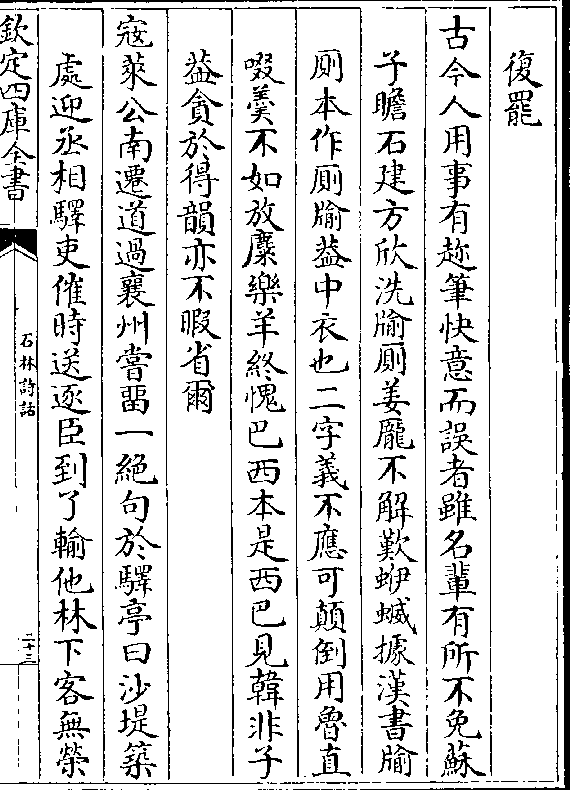 復罷
古今人用事有趂筆快意而誤者雖名輩有所不免蘇
子瞻石建方欣洗牏厠姜龎不解歎蛜蝛據漢書牏
厠本作厠牏葢中衣也二字義不應可顛倒用魯直
啜羮不如放麋樂羊終愧巴西本是西巴見韓非子
葢貪於得韻亦不暇省爾
寇萊公南遷道過襄州嘗留一絶句於驛亭曰沙堤築
處迎丞相驛吏催時送逐臣到了輸他林下客無榮
欽定四庫全書
石林詩話
二十三